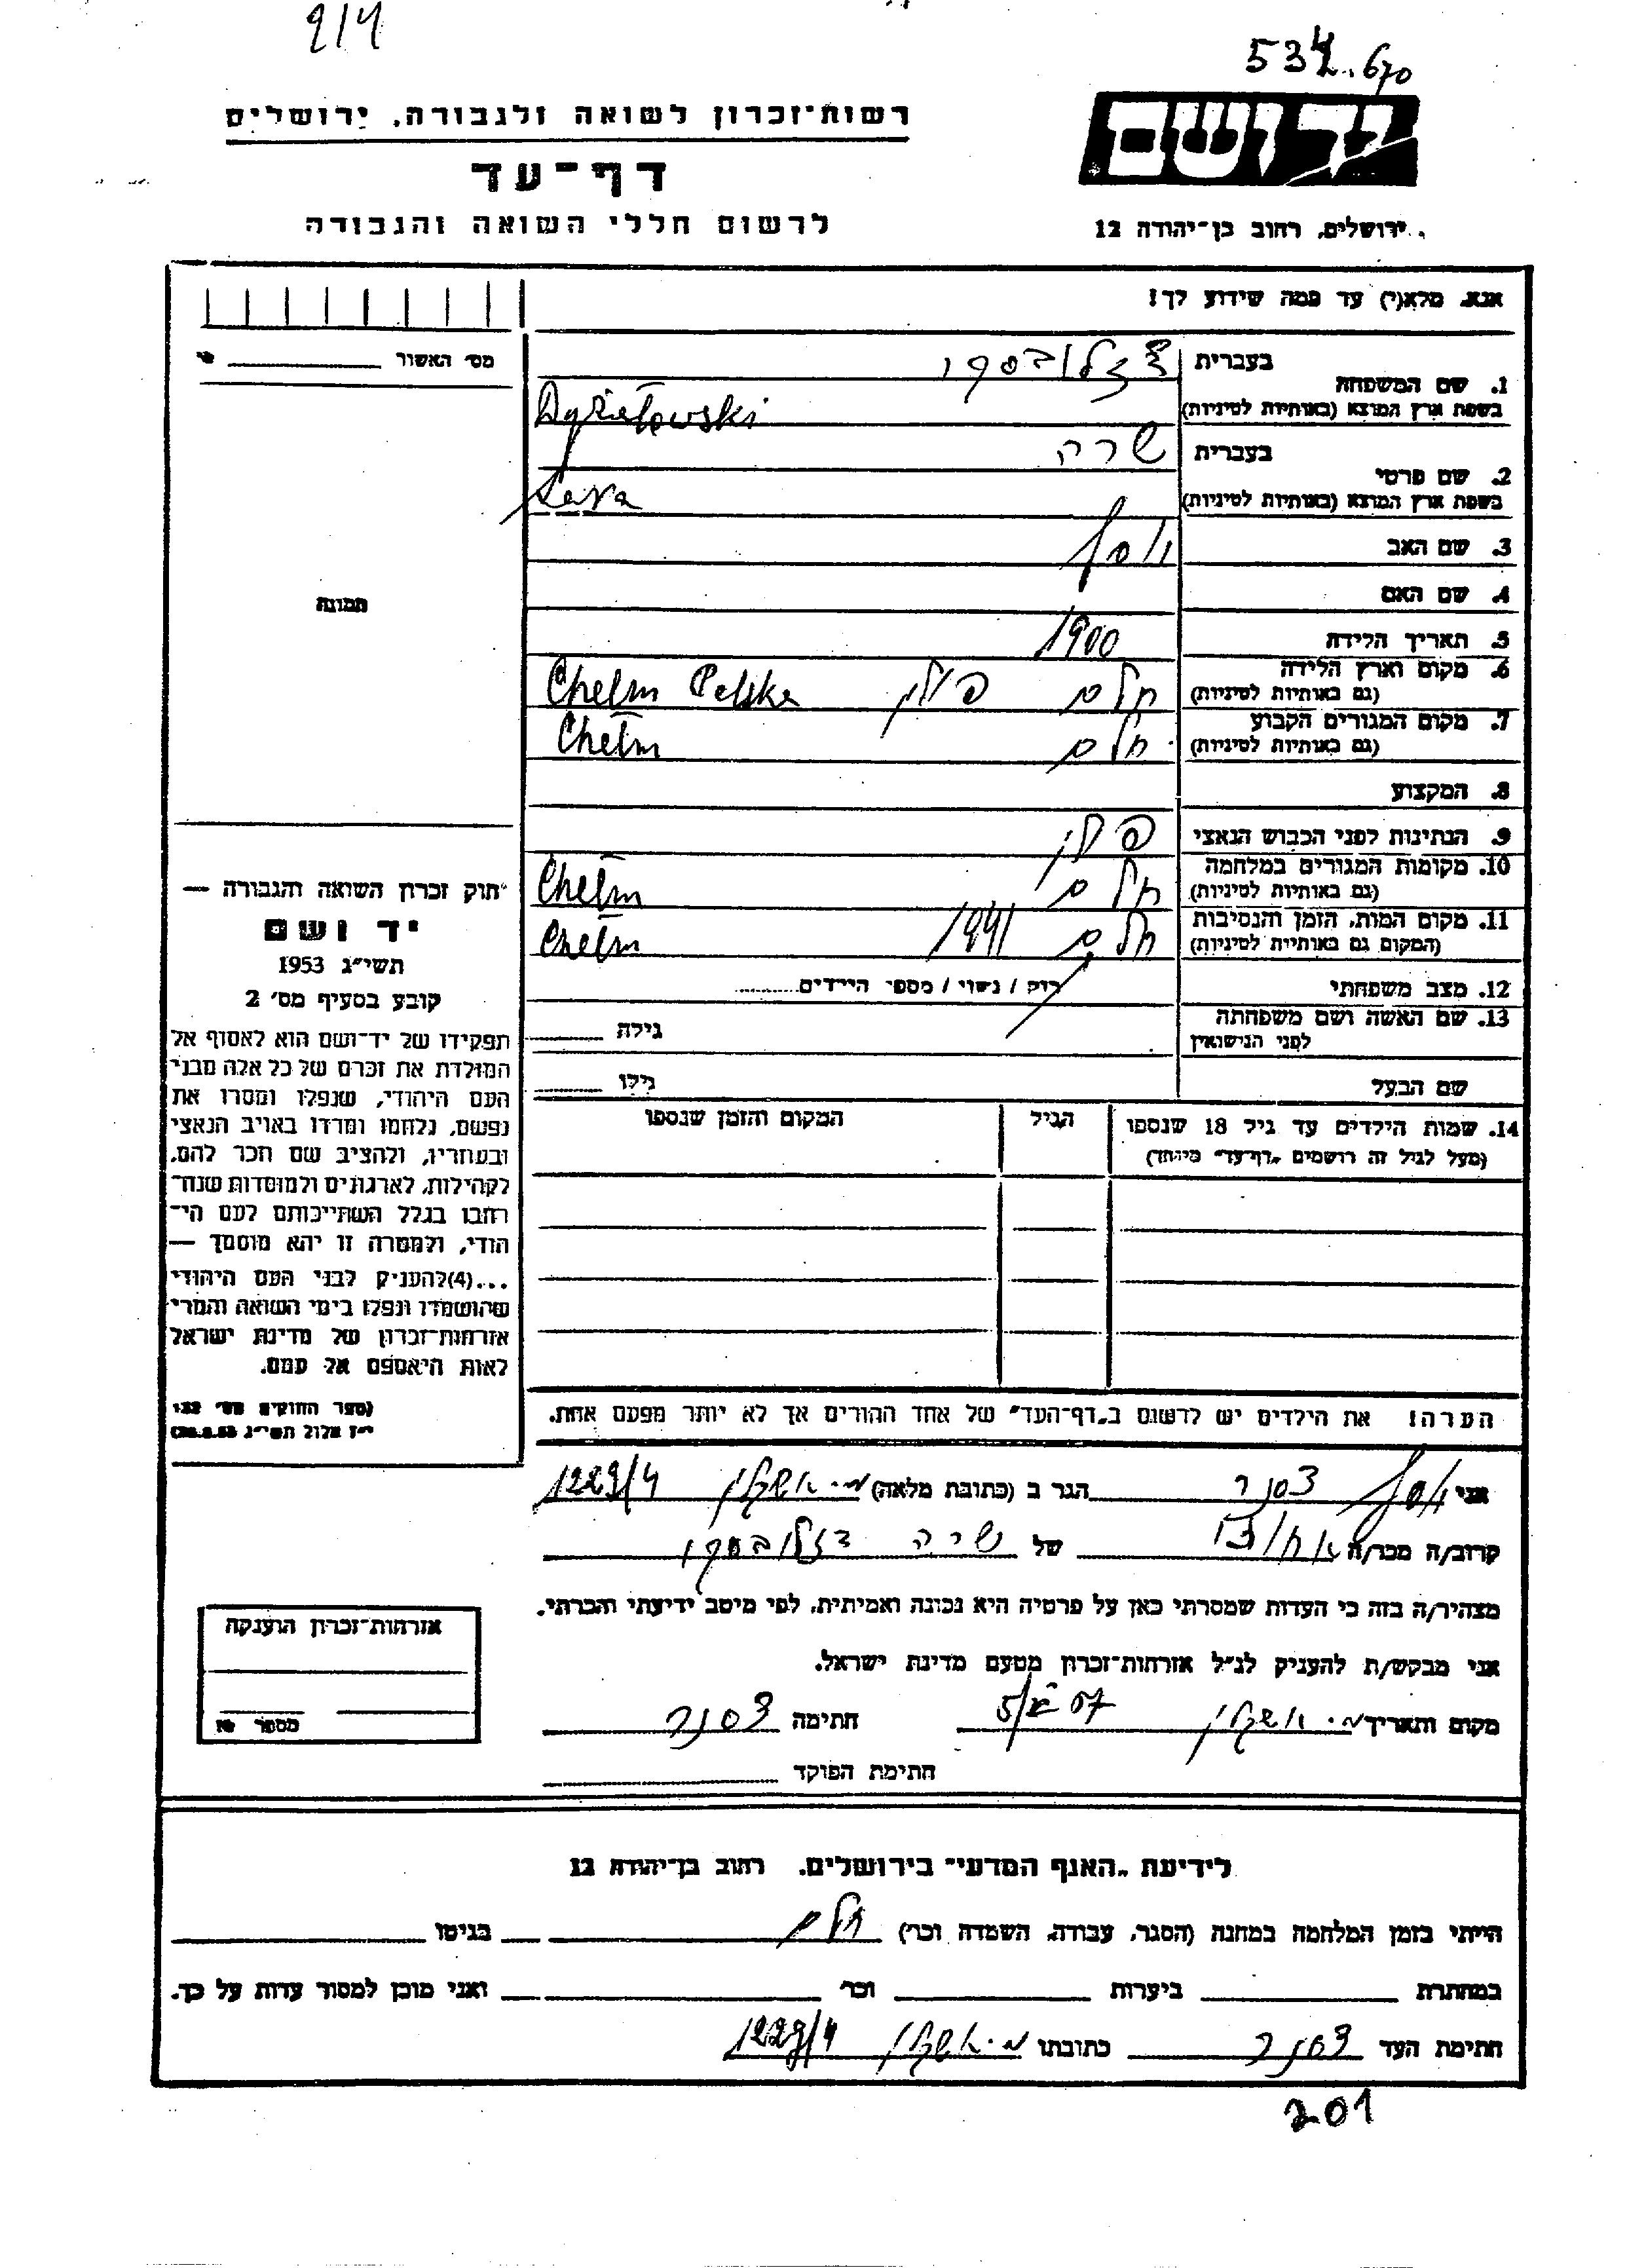 9/4
534.670
רשות־זכרון לשואה ולגבורה, ירושלים
יד ושם
דף־עד
לרשום חללי השואה והגבורה
ירושלים, רחוב בן־יהודה 12
אנא, מלא(י) עד כמה שידוע לך!
מס' האשור
1. שם המשפחה
בעברית
בשפת ארץ המוצא (באותיות לטיניות)
Dyżełowski
2. שם פרטי
בעברית שרה
בשפת ארץ המוצא (באותיות לטיניות) Sara
3. שם האב יוסף
4. שם האם
תמונה
5. תאריך הלידה 1900
6. מקום וארץ הלידה
(גם באותיות לטיניות) חלם פולין Chełm Polska
7. מקום המגורים הקבוע
(גם באותיות לטיניות) חלם Chełm
8. המקצוע
9. הנתינות לפני הכבוש הנאצי פולין
10. מקומות המגורים במלחמה
(גם באותיות לטיניות) חלם Chełm
11. מקום המות, הזמן והנסיבות
(המקום גם באותיות לטיניות) חלם 1941 Chełm
12. מצב משפחתי רוק / נשוי / מספר הילדים
13. שם האשה ושם משפחתה
לפני הנישואין
גילה
שם הבעל
גילו
14. שמות הילדים עד גיל 18 שנספו
(מעל לגיל זה רושמים "דף־עד" מיוחד)
הגיל
המקום והזמן שנספו
"חוק זכרון השואה והגבורה —
יד ושם
תשי"ג 1953
קובע בסעיף מס' 2
תפקידו של יד־ושם הוא לאסוף אל
המולדת את זכרם של כל אלה מבני
העם היהודי, שנפלו ומסרו את
נפשם, נלחמו ומרדו באויב הנאצי
ובעוזריו, ולהציב שם וזכר להם,
לקהילות, לארגונים ולמוסדות שנח־
רבו בגלל השתייכותם לעם הי־
הודי, ולמטרה זו יהא מוסמך —
...(4)להעניק לבני העם היהודי
שהושמדו ונפלו בימי השואה והמרי
אזרחות־זכרון של מדינת ישראל
לאות היאספם אל עמם.
(ספר החוקים מס' 132
י"ז אלול תשי"ג 28.8.53)
הערה! את הילדים יש לרשום ב"דף־העד" של אחד ההורים אך לא יותר מפעם אחת.
אני יוסף צסנר הגר ב (כתובת מלאה) מ. אשקלון 1229/4
קרוב/ה מכר/ה של שרה
מצהיר/ה בזה כי העדות שמסרתי כאן על פרטיה היא נכונה ואמיתית, לפי מיטב ידיעתי והכרתי.
אני מבקש/ת להעניק לנ"ל אזרחות־זכרון מטעם מדינת ישראל.
מקום ותאריך מ. אשקלון חתימה צסנר
חתימת הפוקד
אזרחות־זכרון הוענקה
מספר
לידיעת "האגף המדעי" בירושלים, רחוב בן־יהודה 12
הייתי בזמן המלחמה במחנה (הסגר, עבודה, השמדה וכו') חלם בגיטו
במחתרת ביערות וכו' ואני מוכן למסור עדות על כך.
חתימת העד צסנר כתובתו מ. אשקלון 1229/4
201